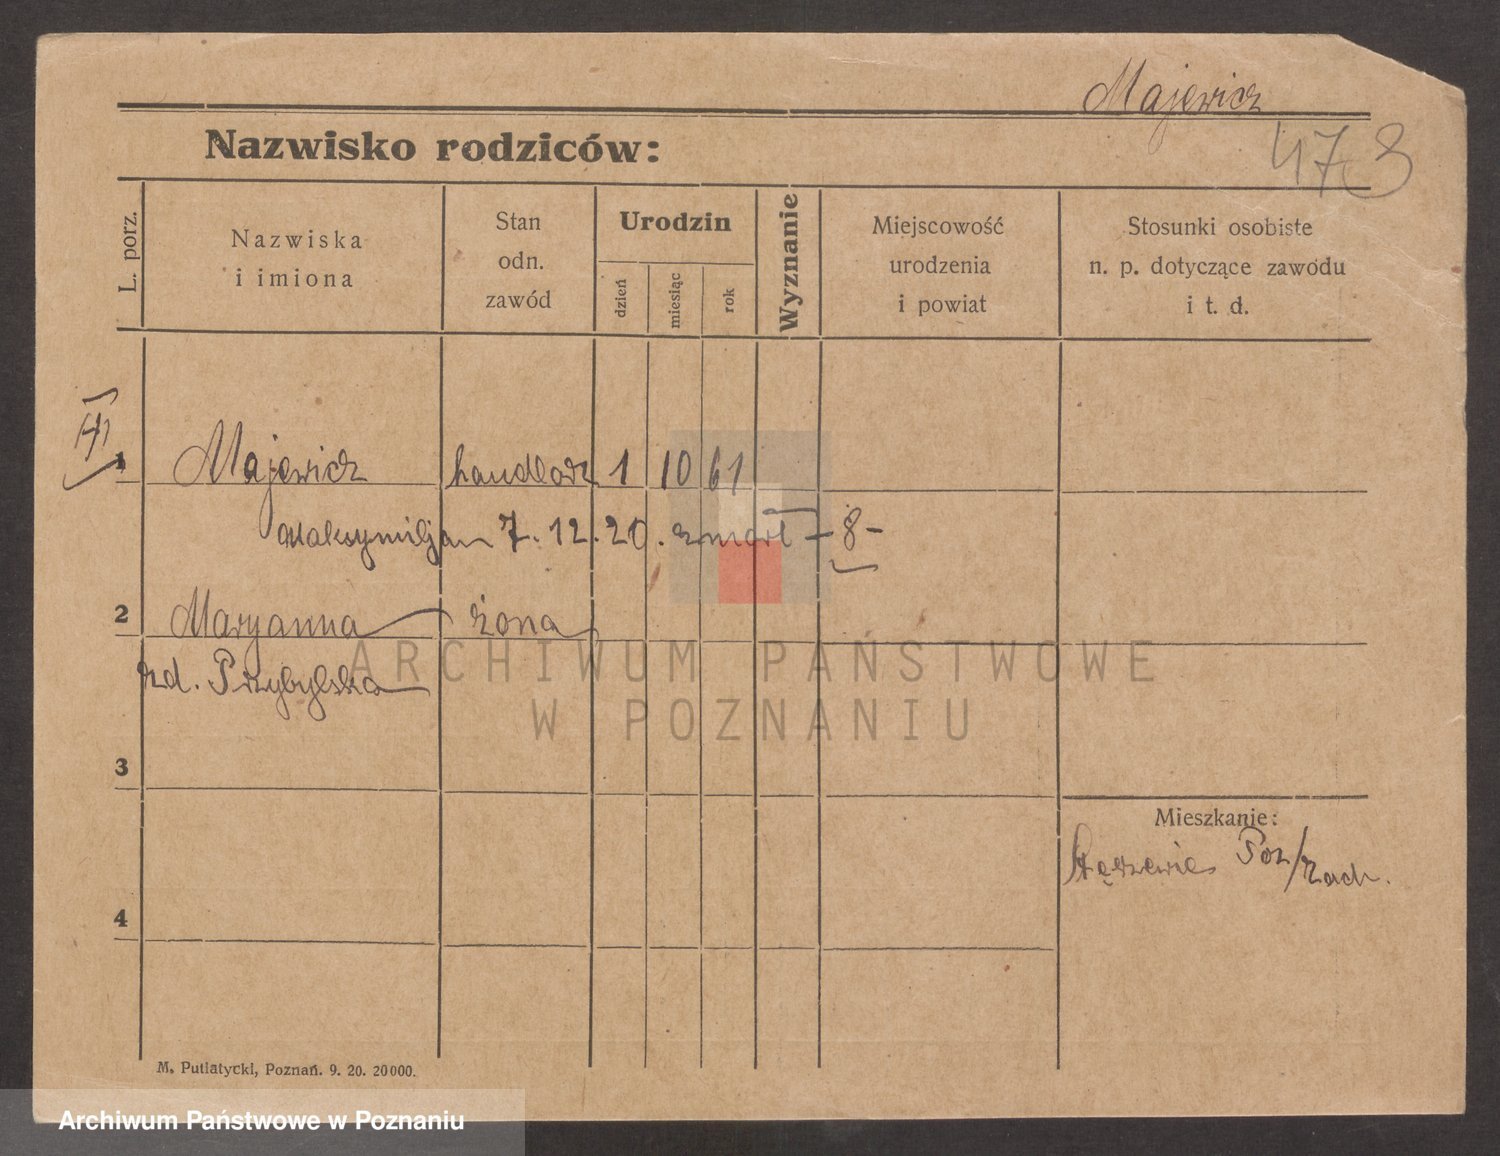 Majewicz
Nazwisko rodziców:
473
L. porz.
Nazwiska
i imiona
Stan
odn.
zawód
Urodzin
dzień
miesiąc
rok
Wyznanie
Miejscowość
urodzenia
i powiat
Stosunki osobiste
n. p. dotyczące zawodu
i t. d.
1 Majewicz handlarz 1 10 61
Maksymiljan 7.12.20. zmarł -8-
2 Maryanna żona
zd. Przybylska
ARCHIWUM PAŃSTWOWE
W POZNANIU
3
Mieszkanie:
Poz/zach.
4
M. Putiatycki, Poznań. 9. 20. 20000.
Archiwum Państwowe w Poznaniu